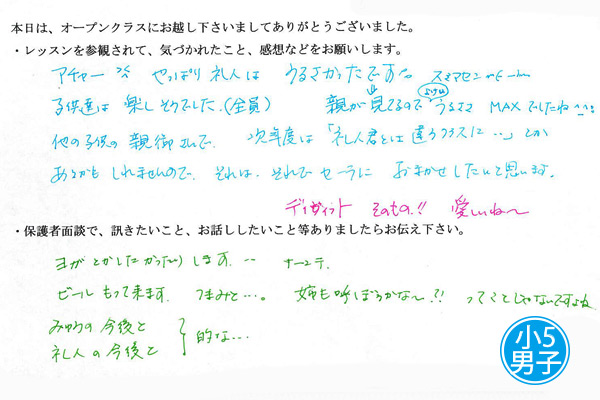 本日は、オープンクラスにお越し下さいましてありがとうございました。
・レッスンを参観されて、気づかれたこと、感想などをお願いします。
アチャー やっぱり 礼人は うるさかったです スミマセン
子供達は 楽しそうでした。(全員) 親が見てるので よけい うるささ MAX でしたね
他の子供の 親御さんで、 次年度は「礼人君とは 違うクラスに…」とか
あるかも しれませんので、それは、それで セーラに おまかせしたいと思います。
デイヴィット そのもの!! 愛しいね〜
・保護者面談で、訊きたいこと、お話ししたいこと等ありましたらお伝え下さい。
ヨガ とかしたかったりします。 なーんて
ビール もって来ます。 つまみと…。 姉も呼ぼうかな〜?! ってことじゃないですよね
みゆうの今後と
礼人の今後と 的な…
小5
男子